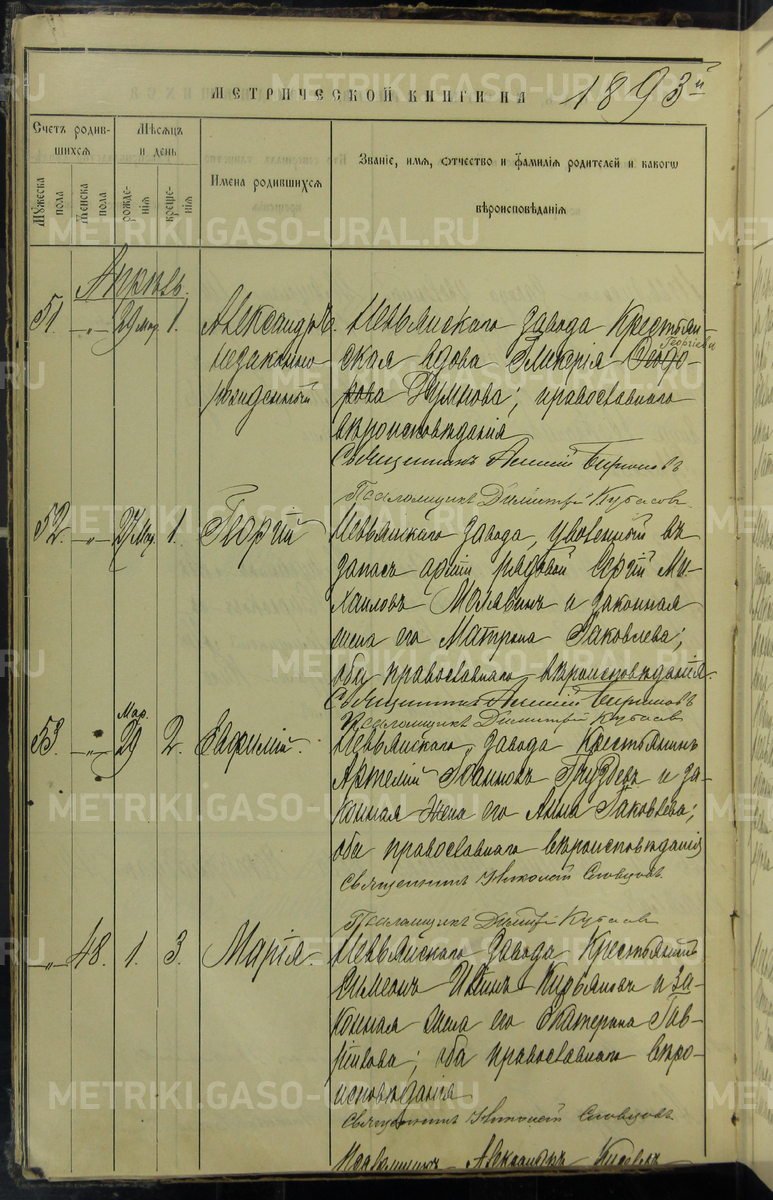 МЕТРИЧЕСКОЙ КНИГИ НА 1893й
Счетъ родив-
шихся
Мѣсяцъ
и день
Имена родившихся
Званіе, имя, отчество и фамилія родителей и какого
вѣроисповѣданія
Мужеска
пола
Женска
пола
рожде-
нія
креще-
нія
Апрѣль.
51 -„- 29 Мар. 1. Александръ
незаконно
рожденный
Невьянскаго завода Крестьян-
ская вдова Гликерія Георгіева Ѳеодо-
рова; православнаго
вѣроисповѣданія
Священникъ
Псаломщикъ Димитрій Кубасовъ
52. -„- 27 Мар. 1. Георгій
Невьянскаго завода, уволенный въ
запасъ арміи рядовой Сергій Ми-
хаиловъ Малявинъ и законная
жена его Матрона Яковлева;
оба православнаго вѣроисповѣданія.
Священникъ
Псаломщикъ Димитрій Кубасовъ
53. -„- Мар. 29 2. Евфимій.
Невьянскаго завода Крестьянинъ
Артемій Іоанновъ Груздевъ и за-
конная жена его Анна Яковлева;
оба православнаго вѣроисповѣданія
Священникъ Николай Словцовъ
Псаломщикъ Димитрій Кубасовъ
-„- 48. 1. 3. Марія.
Невьянскаго завода Крестьянинъ
Симеонъ и за-
конная жена его Екатерина Гав-
рилова; оба православнаго вѣро-
исповѣданія
Священникъ Николай Словцовъ
Псаломщикъ Александръ
METRIKI.GASO-URAL.RU